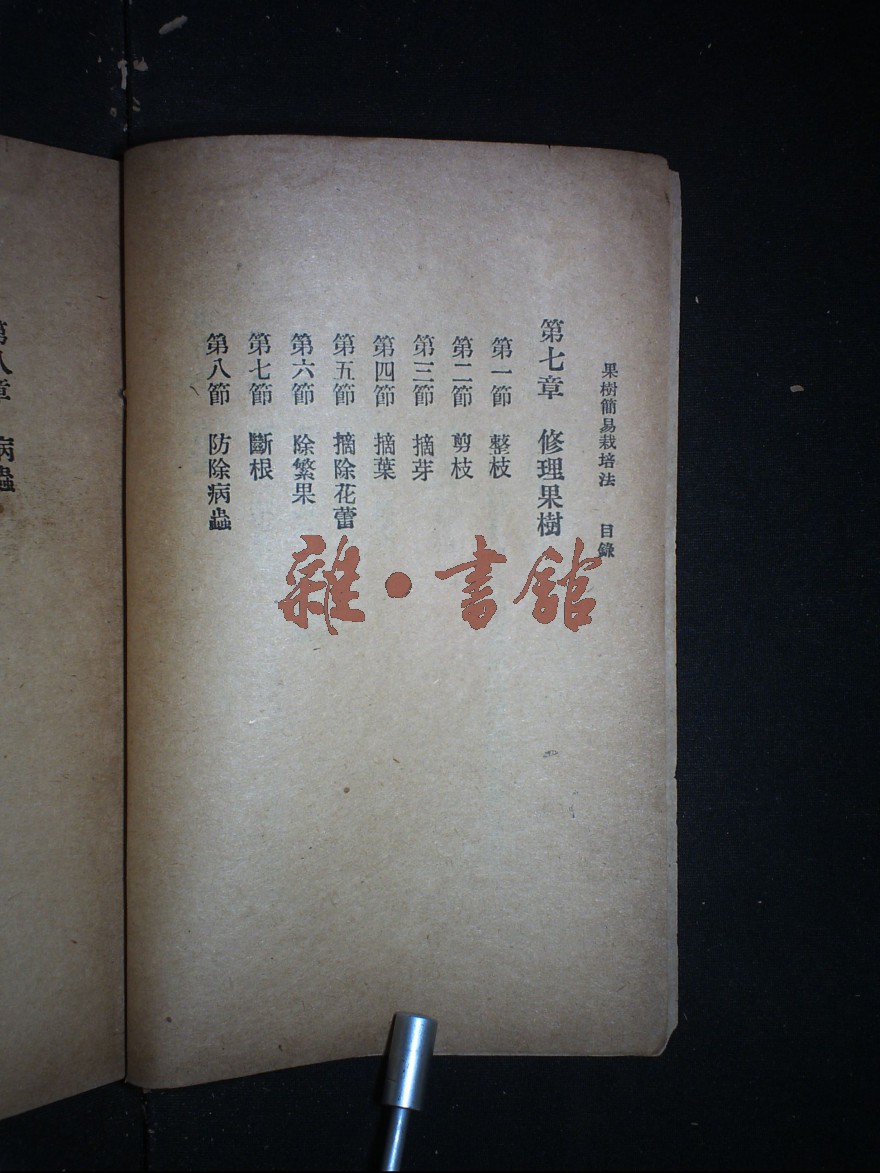 果樹簡易栽培法 目錄
第七章 修理果樹
第一節 整枝
第二節 剪枝
第三節 摘芽
第四節 摘葉
第五節 摘除花蕾
第六節 除繁果
第七節 斷根
第八節 防除病蟲
第八章 病蟲
雜·書館